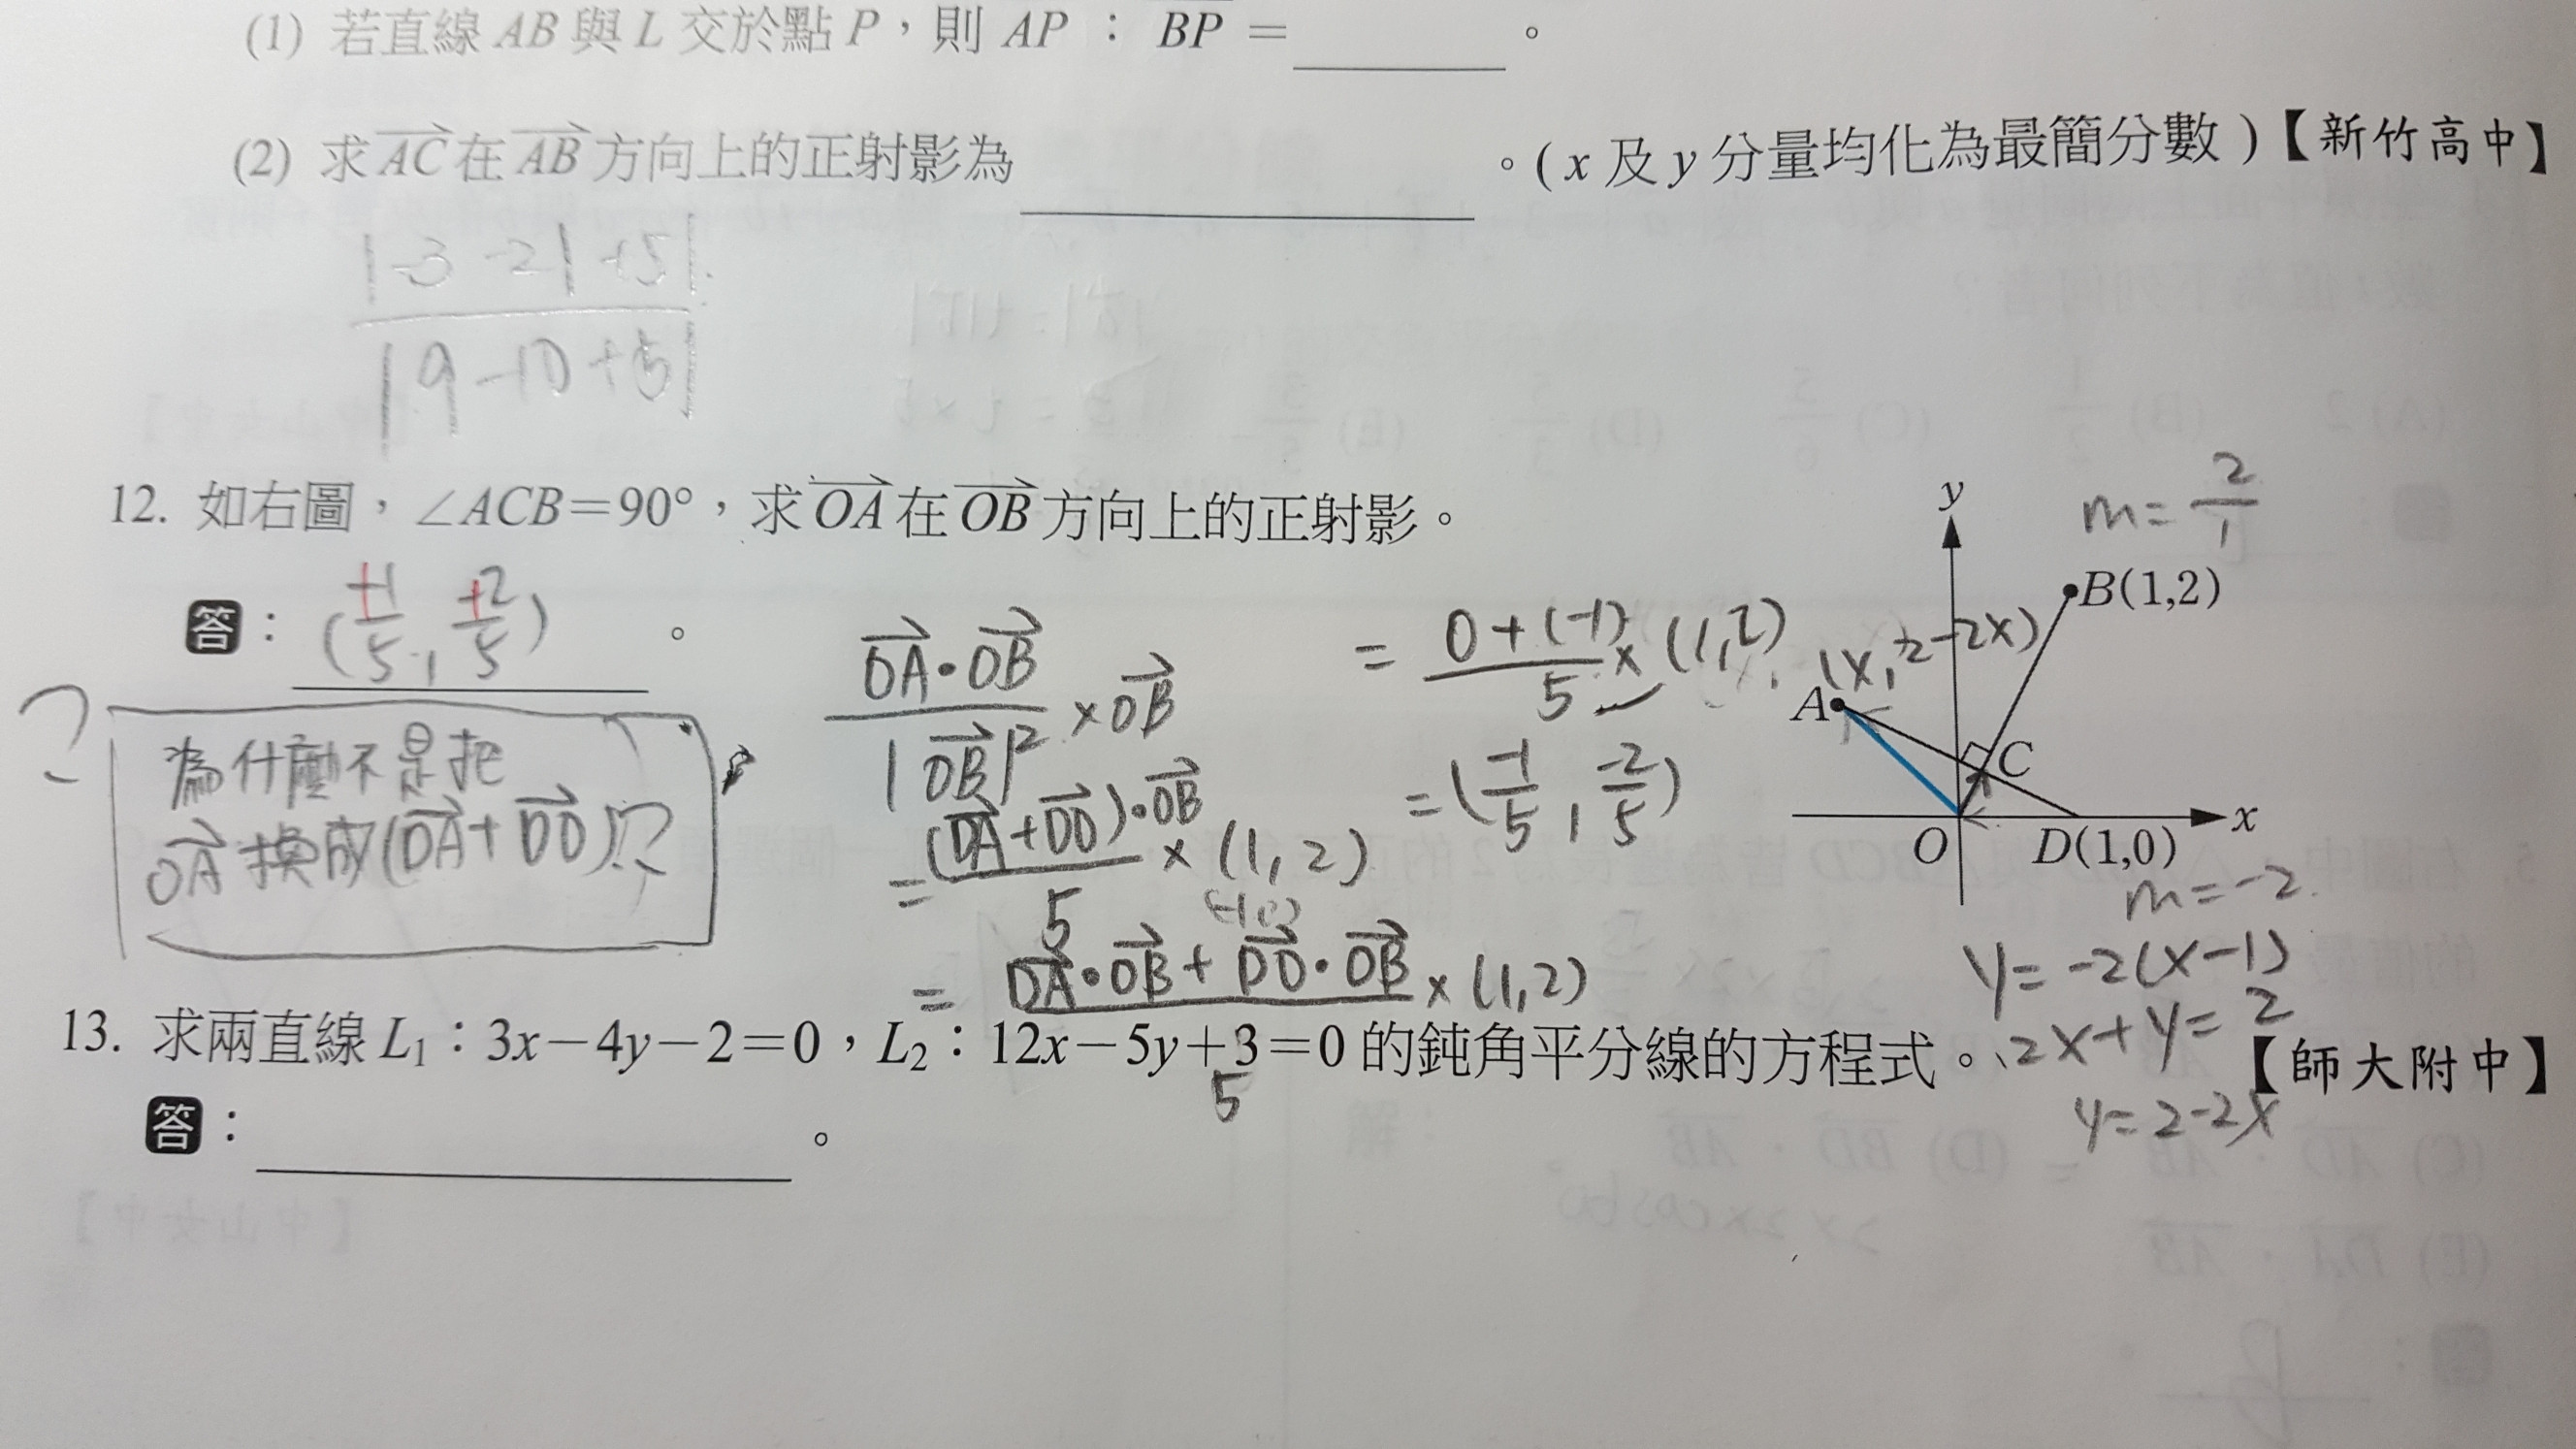 (1) 若直線 AB 與 L 交於點 P，則 AP : BP = ______ 。
(2) 求 AC 在 AB 方向上的正射影為 ______ 。( x 及 y 分量均化為最簡分數 )【新竹高中】
|-3 -2| +5|
|9-10+5|
12. 如右圖，∠ACB=90°，求 OA 在 OB 方向上的正射影。
答：(+1/5, +2/5) 。
?
為什麼不是把
OA 換成(DA+DO)!?
OA•OB / |OB|² ×OB
= (DA+DO)•OB / 5 × (1,2)
(-1,0)
= DA•OB + DO•OB / 5 × (1,2)
= 0+(-1) / 5 × (1,2)
= (-1/5, -2/5)
y
m= 2/1
B(1,2)
(x, 2-2x)
A
C
O
D(1,0)
x
m=-2
y= -2(x-1)
2x+y= 2
y=2-2x
13. 求兩直線 L₁：3x－4y－2＝0，L₂：12x－5y＋3＝0 的鈍角平分線的方程式。【師大附中】
答：______ 。